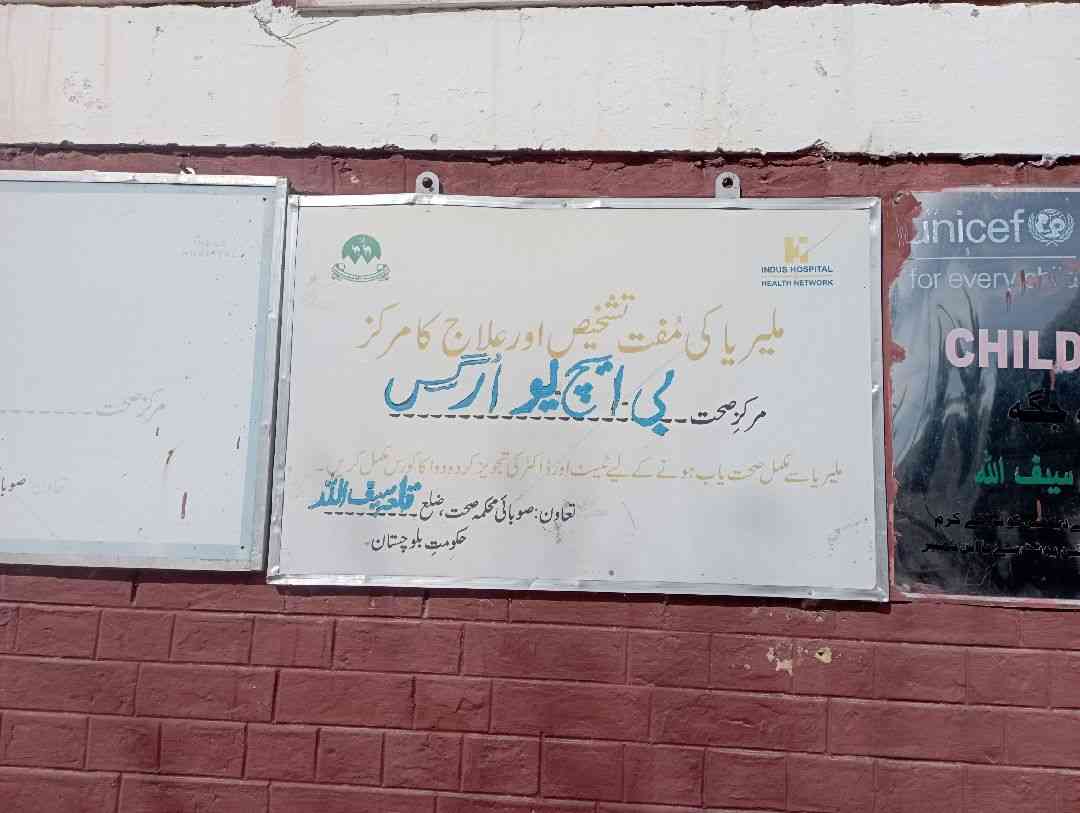 INDUS HOSPITAL
HEALTH NETWORK
ملیریا کی مُفت تشخیص اور علاج کا مرکز
مرکزِ صحت بی ایچ یو اُرگس
ملیریا سے مکمل صحت یاب ہونے کے لیے ٹیسٹ اور ڈاکٹر کی تجویز کردہ دوا کا کورس مکمل کریں۔
تعاون: صوبائی محکمہ صحت، ضلع قلعہ سیف اللہ
حکومتِ بلوچستان۔
مرکزِ صحت
تعاون
unicef
for every child
CHILD
جگہ
سیف اللہ